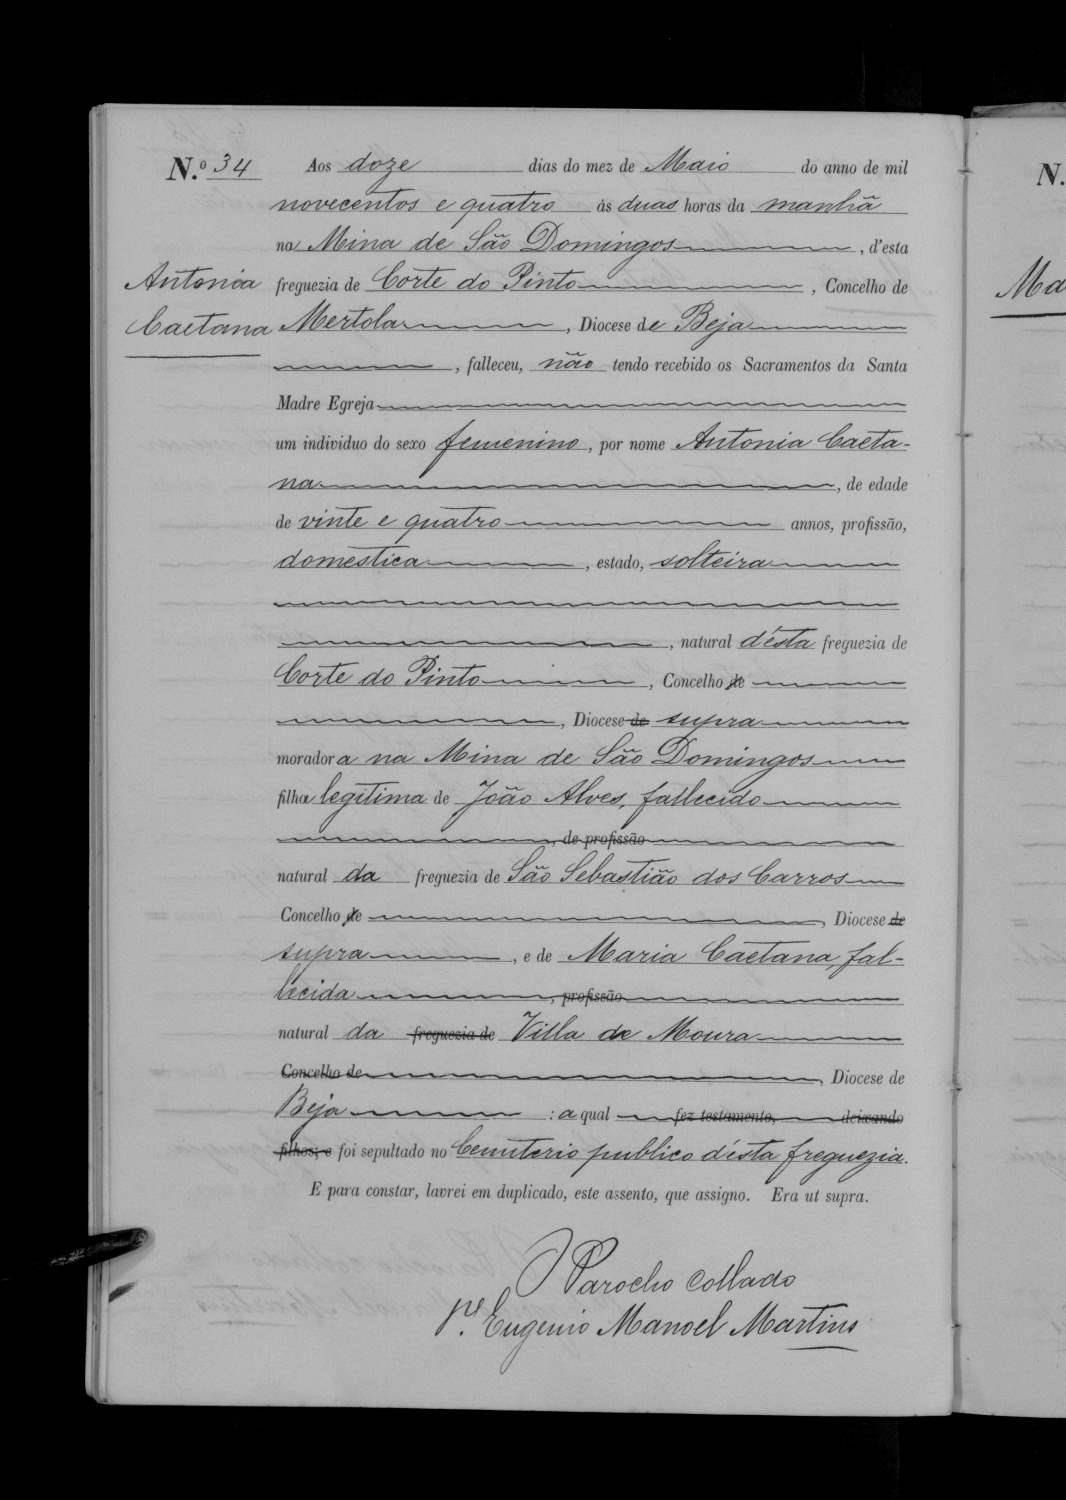 N.º 34 Aos doze dias do mez de Maio do anno de mil
novecentos e quatro ás duas horas da manhã
na Mina de São Domingos, d'esta
Antonia freguezia de Corte do Pinto, Concelho de
Caetana Mertola, Diocese de Beja
, falleceu, não tendo recebido os Sacramentos da Santa
Madre Egreja
um individuo do sexo femenino, por nome Antonia Caeta-
na, de edade
de vinte e quatro annos, profissão,
domestica, estado, solteira
, natural d'ésta freguezia de
Corte do Pinto, Concelho de
, Diocese de supra
moradora na Mina de São Domingos
filha legitima de João Alves, fallecido
, de profissão
natural da freguezia de São Sebastião dos Carros
Concelho de, Diocese de
supra, e de Maria Caetana, fal-
lecida, profissão
natural da freguezia de Villa de Moura
Concelho de, Diocese de
Beja : a qual fez testamento, deixando
filhos; e foi sepultado no Cemiterio publico d'ésta freguezia.
E para constar, lavrei em duplicado, este assento, que assigno. Era ut supra.
O Parocho Collado
P.e Eugenio Manoel Martins
N.
Ma